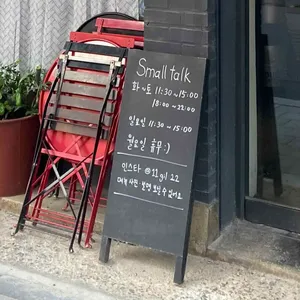 Small talk
화~토 11:30~15:00
18:00~22:00
일요일 11:30~15:00
월요일 휴무:)
인스타 @11gil_22
메뉴 사진 보실 수 있어요